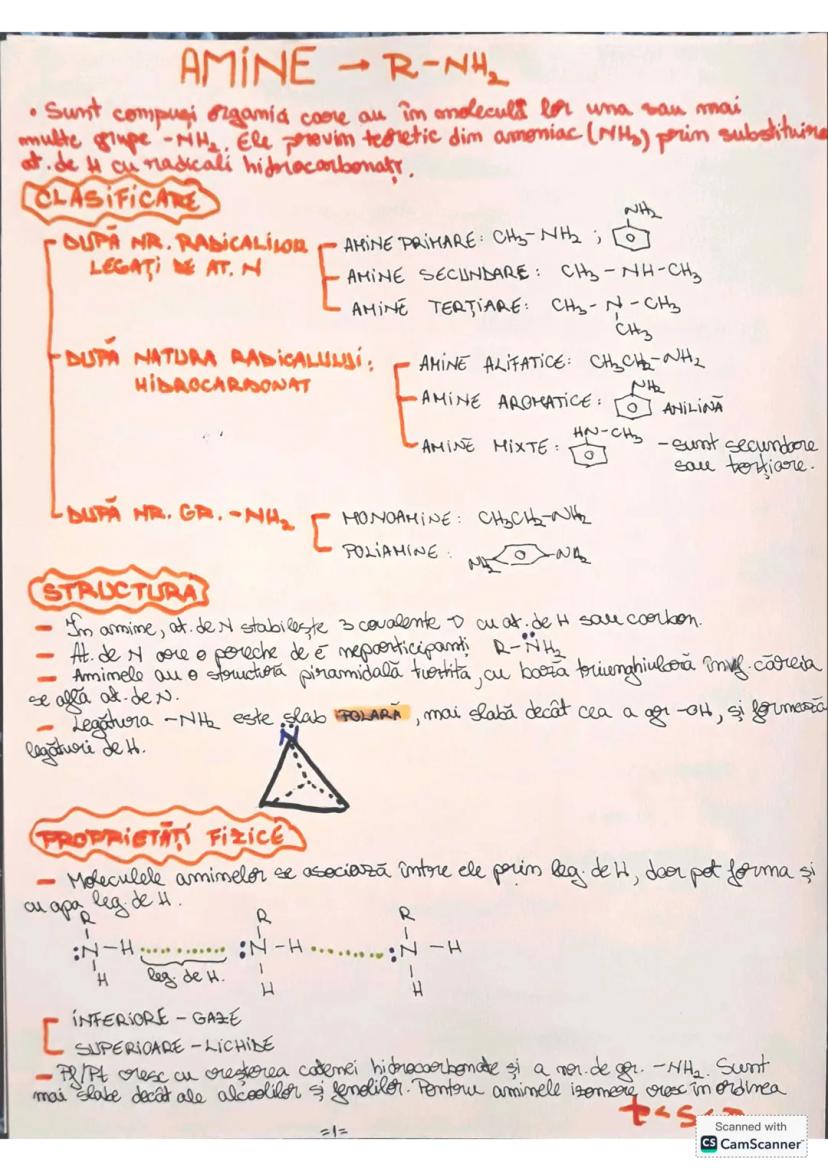 AMINE → R-NH₂
• Sunt compuși organici care au în moleculă lor una sau mai
multe grupe -NH₂. Ele provin teoretic din amoniac (NH₃) prin substituirea
at. de H cu radicali hidrocarbonați.
CLASIFICARE
DUPĂ NR. RADICALILOR
LEGAȚI DE AT. N
AMINE PRIMARE: CH₃-NH₂ ; NH₂
AMINE SECUNDARE: CH₃-NH-CH₃
AMINE TERȚIARE: CH₃-N-CH₃
CH₃
DUPĂ NATURA RADICALULUI:
HIDROCARBONAT
AMINE ALIFATICE: CH₃CH₂-NH₂
NH₂
AMINE AROMATICE: ANILINĂ
AMINE MIXTE: HN-CH₃ - sunt secundare
sau terțiare.
DUPĂ NR. GR. -NH₂
MONOAMINE: CH₃CH₂-NH₂
POLIAMINE: NH₂ -NH₂
STRUCTURA
- În amine, at. de N stabilește 3 covalente → cu at. de H sau carbon.
- At. de N are o pereche de e⁻ neparticipanți R-N̈H₂
- Aminele au o structură piramidală turtită, cu bază triunghiulară în vf. căreia
se află at. de N.
- Legătura -NH₂ este slab POLARĂ, mai slabă decât cea a gr -OH, și formează
legături de H.
N
PROPRIETĂȚI FIZICE
- Moleculele aminelor se asociază între ele prin leg. de H, dar pot forma și
cu apa leg. de H.
R R R
:N-H ........ :N-H ........ :N-H
H leg. de H. H H
INFERIOARE - GAZE
SUPERIOARE - LICHIDE
- Pf/Pt cresc cu creșterea catenei hidrocarbonate și a nr. de gr. -NH₂. Sunt
mai slabe decât ale alcoolilor și fenolilor. Pentru aminele izomere cresc în ordinea
t<s<
=1=
Scanned with
CS CamScanner